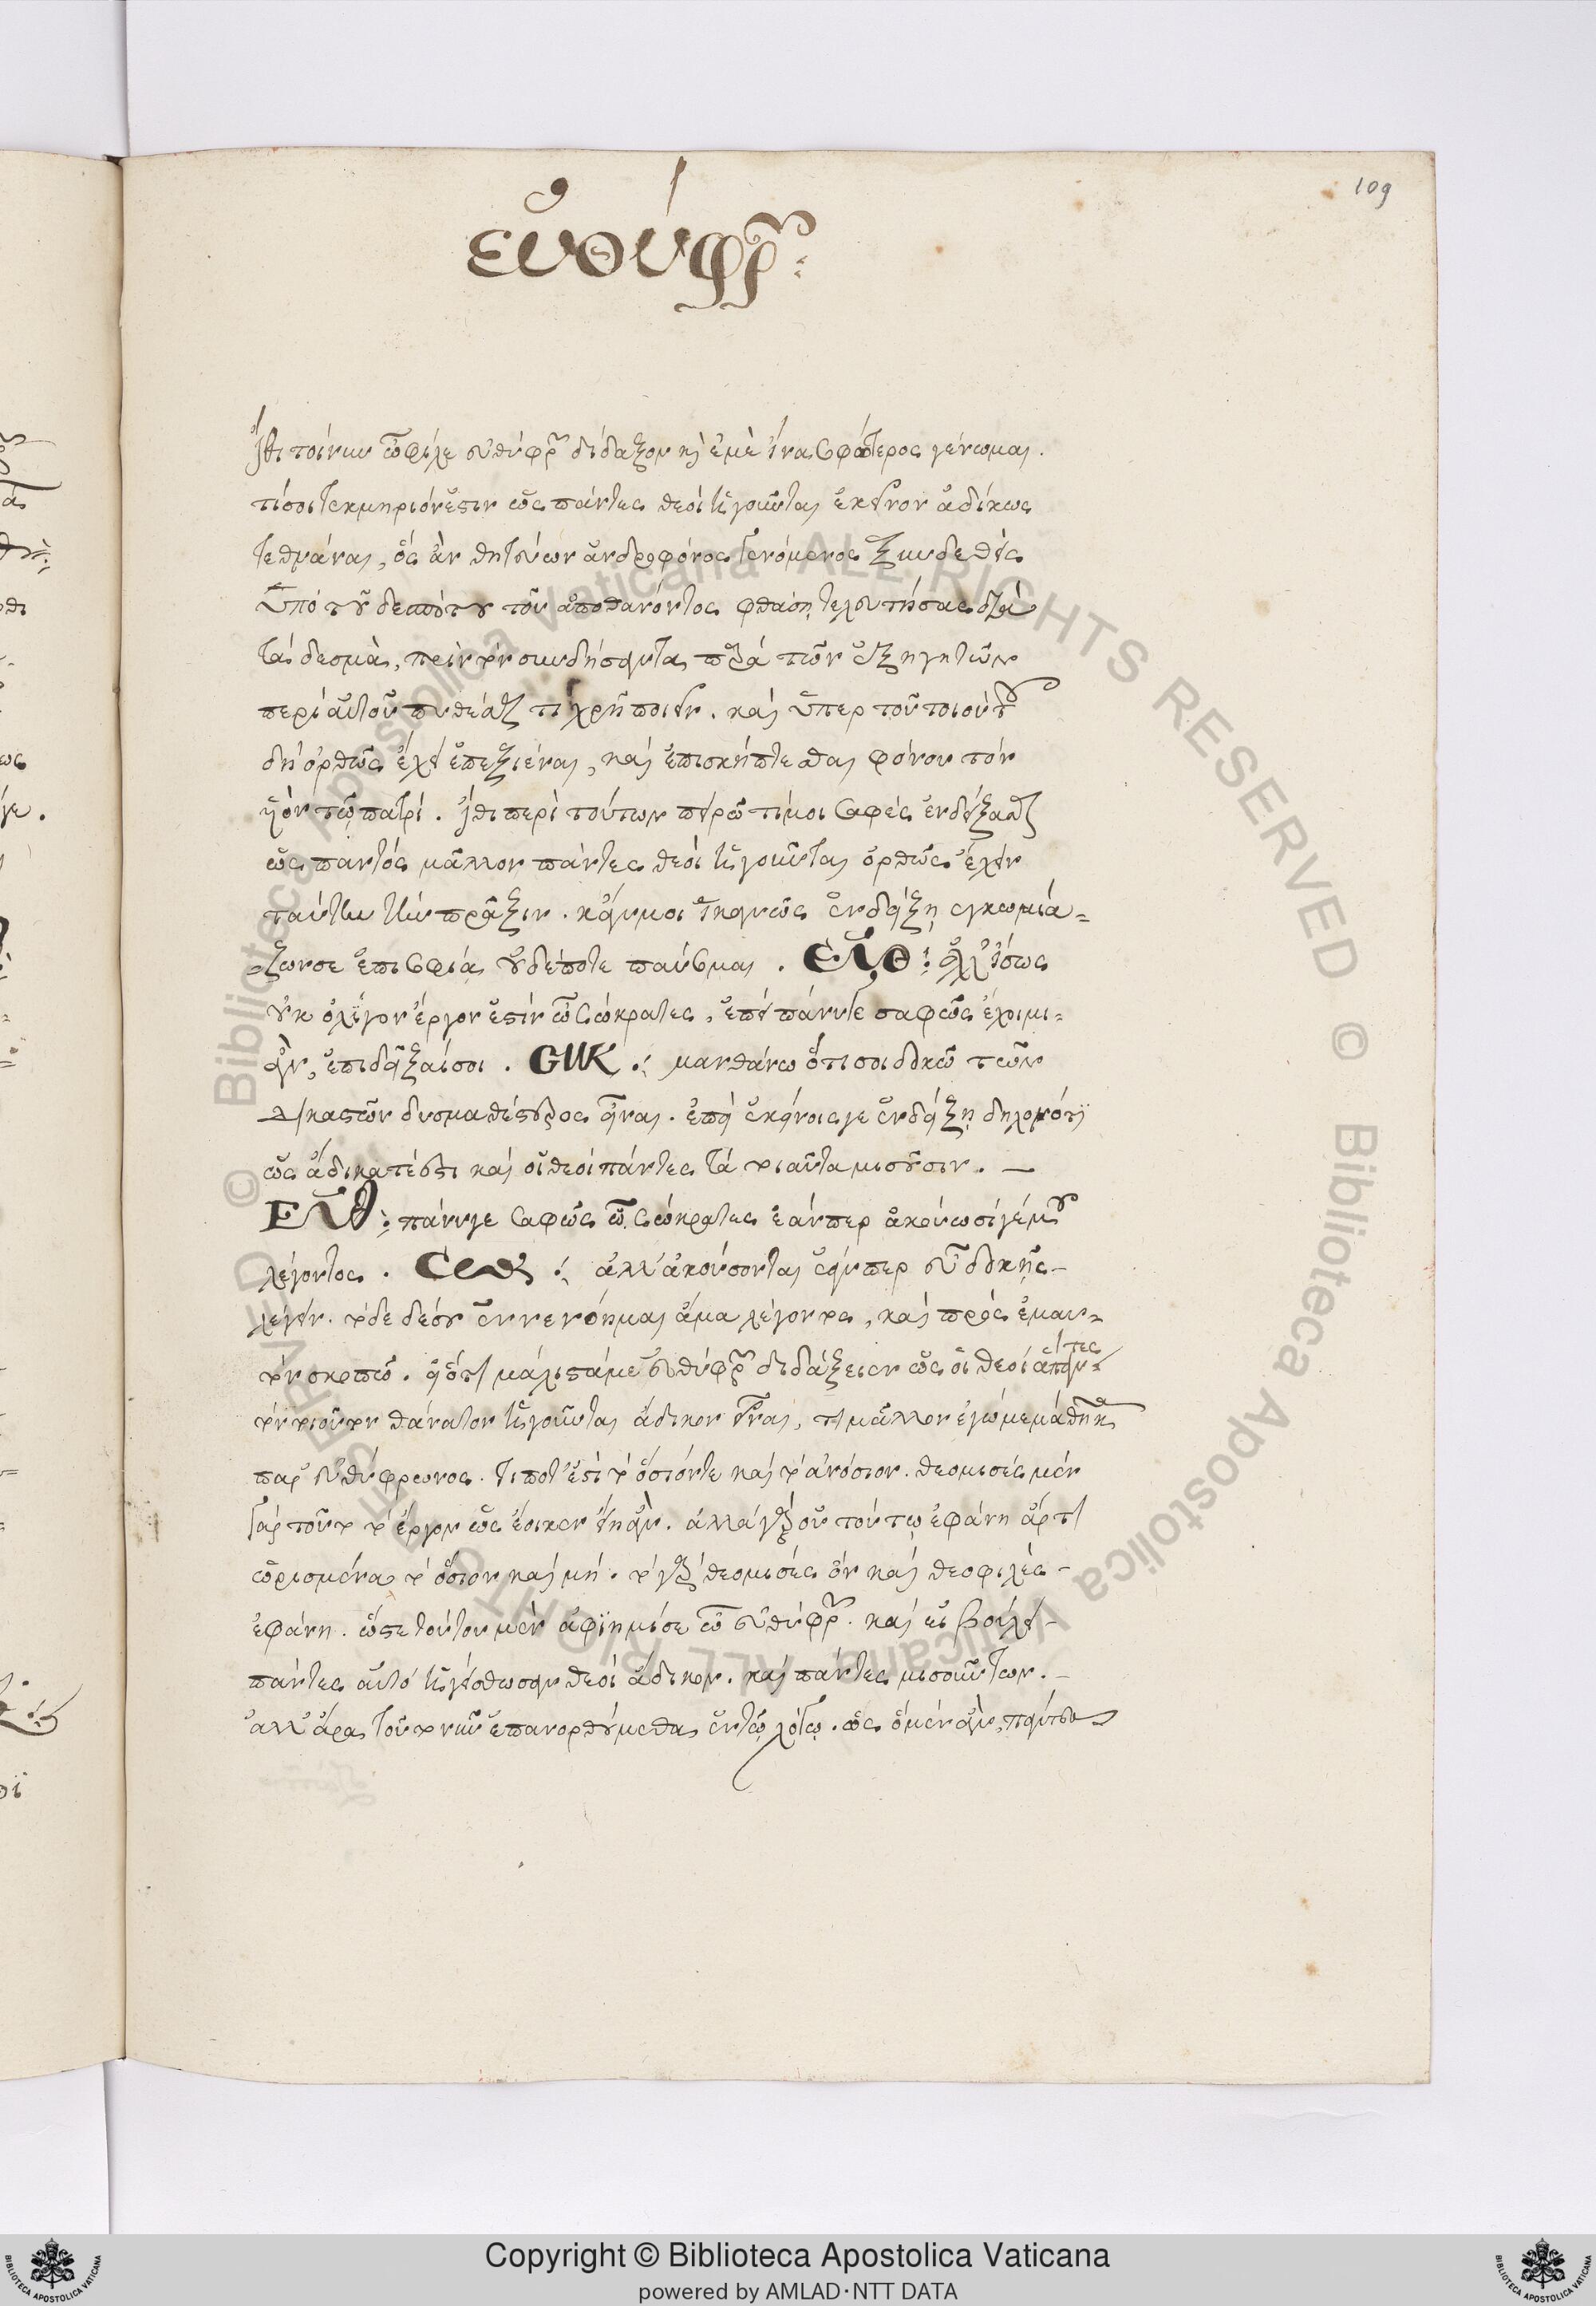 109
εὐθύφρ῀:
ἴθι τοίνυν ὦ φίλε εὐθύφρ῀ δίδαξον κὶ ἐμὲ ἵνα σοφώτερος γένωμαι.
τί σοι τεκμήριόν ἐστιν ὡς πάντες θεοὶ ἡγοῦνται ἐκεῖνον ἀδίκως
τεθνάναι, ὃς ἂν θητεύων ἀνδροφόνος γενόμενος ξυνδεθεὶς
ὑπὸ τοῦ δεσπότου τοῦ ἀποθανόντος φθάσῃ τελευτήσας διὰ
τὰ δεσμὰ, πρὶν τὸν συνδήσαντα παρὰ τῶν ἐξηγητῶν
περὶ αὐτοῦ πυθέσθαι τί χρὴ ποιεῖν. καὶ ὑπὲρ τοῦ τοιούτου
δὴ ὀρθῶς ἔχει ἐπεξιέναι, καὶ ἐπισκήπτεσθαι φόνου τὸν
υἱὸν τῷ πατρί. ἴθι περὶ τούτων πειρῶ τί μοι σαφὲς ἐνδείξασθαι
ὡς παντὸς μᾶλλον πάντες θεοὶ ἡγοῦνται ὀρθῶς ἔχειν
ταύτην τὴν πρᾶξιν. κἄν μοι ἱκανῶς ἐνδείξῃ ἐγκωμιά-
ζων σε ἐπὶ σοφίᾳ οὐδέποτε παύσομαι. ΕΥΘ: ἀλλ' ἴσως
οὐκ ὀλίγον ἔργον ἐστὶν ὦ σώκρατες, ἐπεὶ πάνυ γε σαφῶς ἔχοιμι
ἂν, ἐπιδεῖξαί σοι. CΩΚ: μανθάνω ὅτι σοι δοκῶ τῶν
δικαστῶν δυσμαθέστερος εἶναι. ἐπεὶ ἐκείνοις γε ἐνδείξῃ δηλονότι
ὡς ἄδικά τέ ἐστι καὶ οἱ θεοὶ πάντες τὰ τοιαῦτα μισοῦσιν. –
ΕΥΘ: πάνυ γε σαφῶς ὦ σώκρατες ἐάνπερ ἀκούωσί γέ μου
λέγοντος. CΩΚ: ἀλλ' ἀκούσονται ἐάνπερ εὖ δοκῇς
λέγειν. τόδε δέ σου ἐννενόημαι ἅμα λέγοντος, καὶ πρὸς ἐμαυ-
τὸν σκοπῶ. εἰ ὅτι μάλιστά με εὐθύφρ῀ διδάξειεν ὡς οἱ θεοὶ ἅπαντες
τὸν τοιοῦτον θάνατον ἡγοῦνται ἄδικον εἶναι, τί μᾶλλον ἐγὼ μεμάθηκα
παρ' εὐθύφρωνος. τί ποτ' ἐστὶ τὸ ὅσιόν τε καὶ τὸ ἀνόσιον. θεομισὲς μὲν
γὰρ τοῦτο τὸ ἔργον ὡς ἔοικεν εἴη ἄν. ἀλλὰ γὰρ οὐ τούτῳ ἐφάνη ἄρτι
ὡρισμένα τὸ ὅσιον καὶ μή. τὸ γὰρ θεομισὲς ὂν καὶ θεοφιλὲς
ἐφάνη. ὥστε τούτου μὲν ἀφίημί σε ὦ εὐθύφρ῀. καὶ εἰ βούλει
πάντες αὐτὸ ἡγείσθωσαν θεοὶ ἄδικον. καὶ πάντες μισούντων.
ἀλλ' ἄρα τοῦτο νῦν ἐπανορθούμεθα ἐν τῷ λόγῳ. ὡς ὃ μὲν ἂν πάντες
Copyright © Biblioteca Apostolica Vaticana
powered by AMLAD·NTT DATA